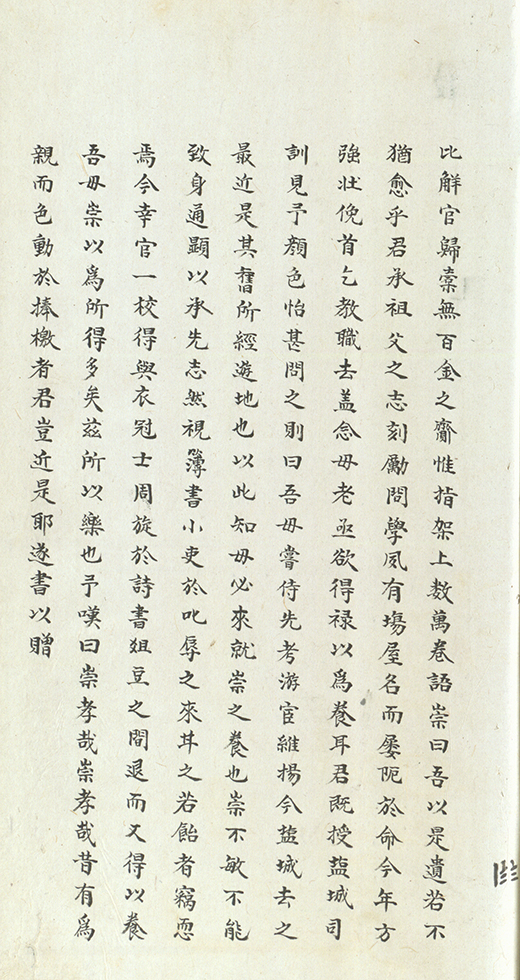 比觧官歸橐無百金之齎惟指架上数萬卷語崇曰吾以是遺若不
猶愈乎君承祖父之志刻勵問學夙有塲屋名而屡阨於命今年方
強壮俛首乞教職去盖念母老亟欲得禄以為養耳君既授盐城司
訓見予顔色怡甚問之則曰吾母嘗侍先考游宦維揚今盐城去之
最近是其舊所經遊地也以此知母必來就崇之養也崇不敏不能
致身通顯以承先志然視簿書小吏於叱辱之來甘之若飴者竊恧
焉今幸官一校得與衣冠士周旋於詩書俎豆之間退而又得以養
吾母崇以為所得多矣兹所以樂也予嘆曰崇孝哉崇孝哉昔有為
親而色動於捧檄者君豈近是耶遂書以贈